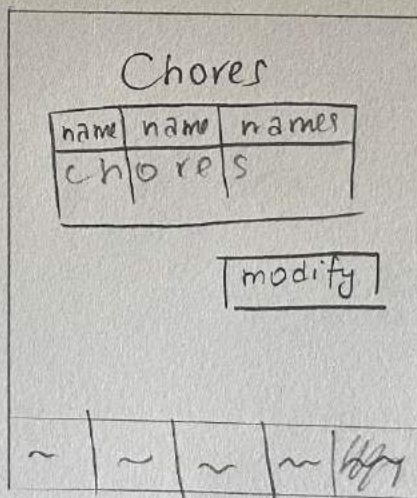 Chores
name name names
chores
modify